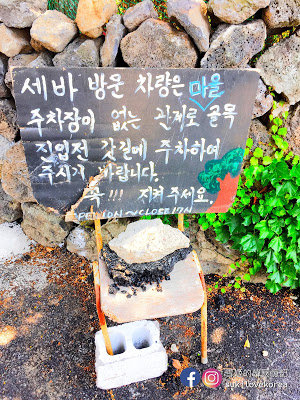 세바 방문 차량은 마을
주차장이 없는 관계로 골목
진입전 갓길에 주차하여
주시기 바랍니다.
꼭 !!! 지켜 주세요.
OPEN 10N CLOSE 17N
yukilovekorea